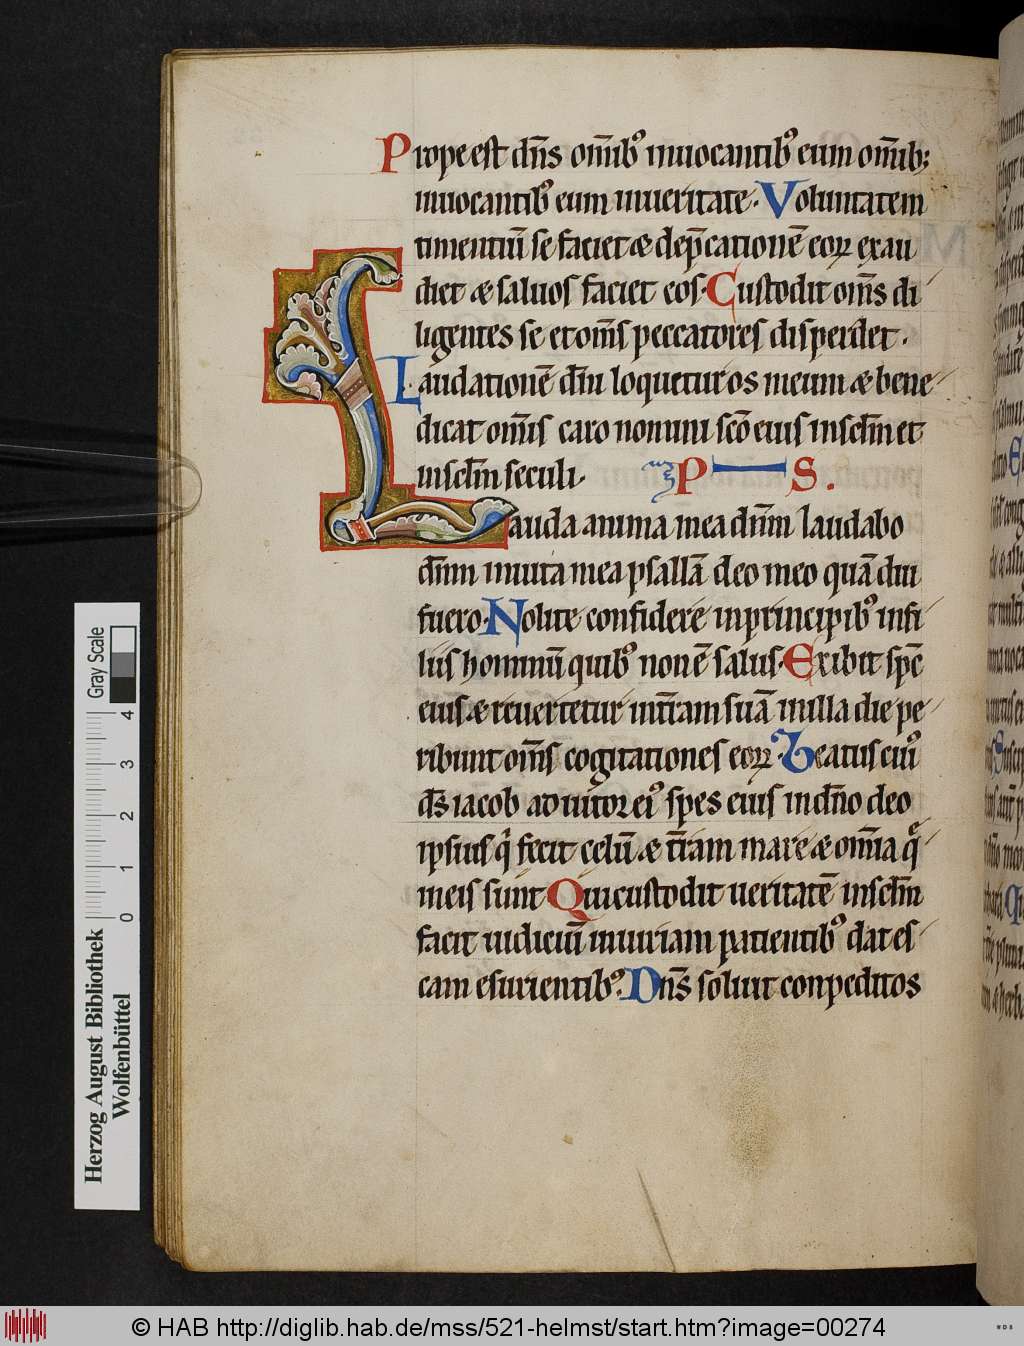 Prope est dn̄s om̄ibꝰ inuocantibꝰ eum om̄ib;
inuocantibꝰ eum in ueritate. Voluntatem
timentiū se faciet & dep̄cationē eoꝝ exau
diet & saluos faciet eos. Custodit om̄s di
ligentes se et om̄s peccatores disperdet.
Laudationē dn̄i loquetur os meum & bene
dicat om̄is caro nomini scō eius in sc̄lm et
in sc̄lm seculi. PS.
Lauda anima mea dn̄m laudabo
dn̄m in uita mea psallā deo meo quā diu
fuero. Nolite confidere in principibꝰ in fi
liis hominū quibꝰ non ē salus. Exibit sp̄c
eius & reuertetur in t̄ram suā in illa die pe
ribunt om̄s cogitationes eoꝝ. Beatus cuiꝰ
ds̄ iacob adiutor eiꝰ spes eius in dn̄o deo
ipsius qͥ fecit celū & t̄ram mare & om̄ia q̄
in eis sunt. Qui custodit ueritatē in sc̄lm
facit iudiciū iniuriam patientibꝰ dat es
cam esurientibꝰ. Dn̄s soluit conpeditos
Gray Scale
0 1 2 3 4
Herzog August Bibliothek
Wolfenbüttel
© HAB http://diglib.hab.de/mss/521-helmst/start.htm?image=00274